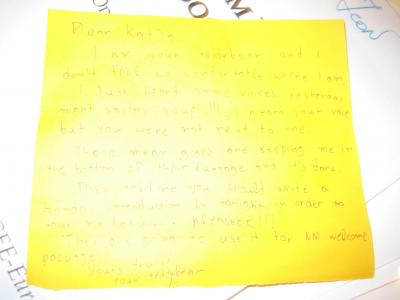 Dear Katja
I am your teddybear and I
don't feel so comfortable where I am.
I just heard some voices yesterday
night saying "your!!! I heard your voice
but you were not next to me.
Those mean guys are keeping me in
the bottom of their luggage and it's dark.
They told me you should write a
introduction by tonight in order to
save me PLEASEEE!!!
They are going to use it for NM welcome
package
Yours truly
Your teddybear
M
SEE-Eur